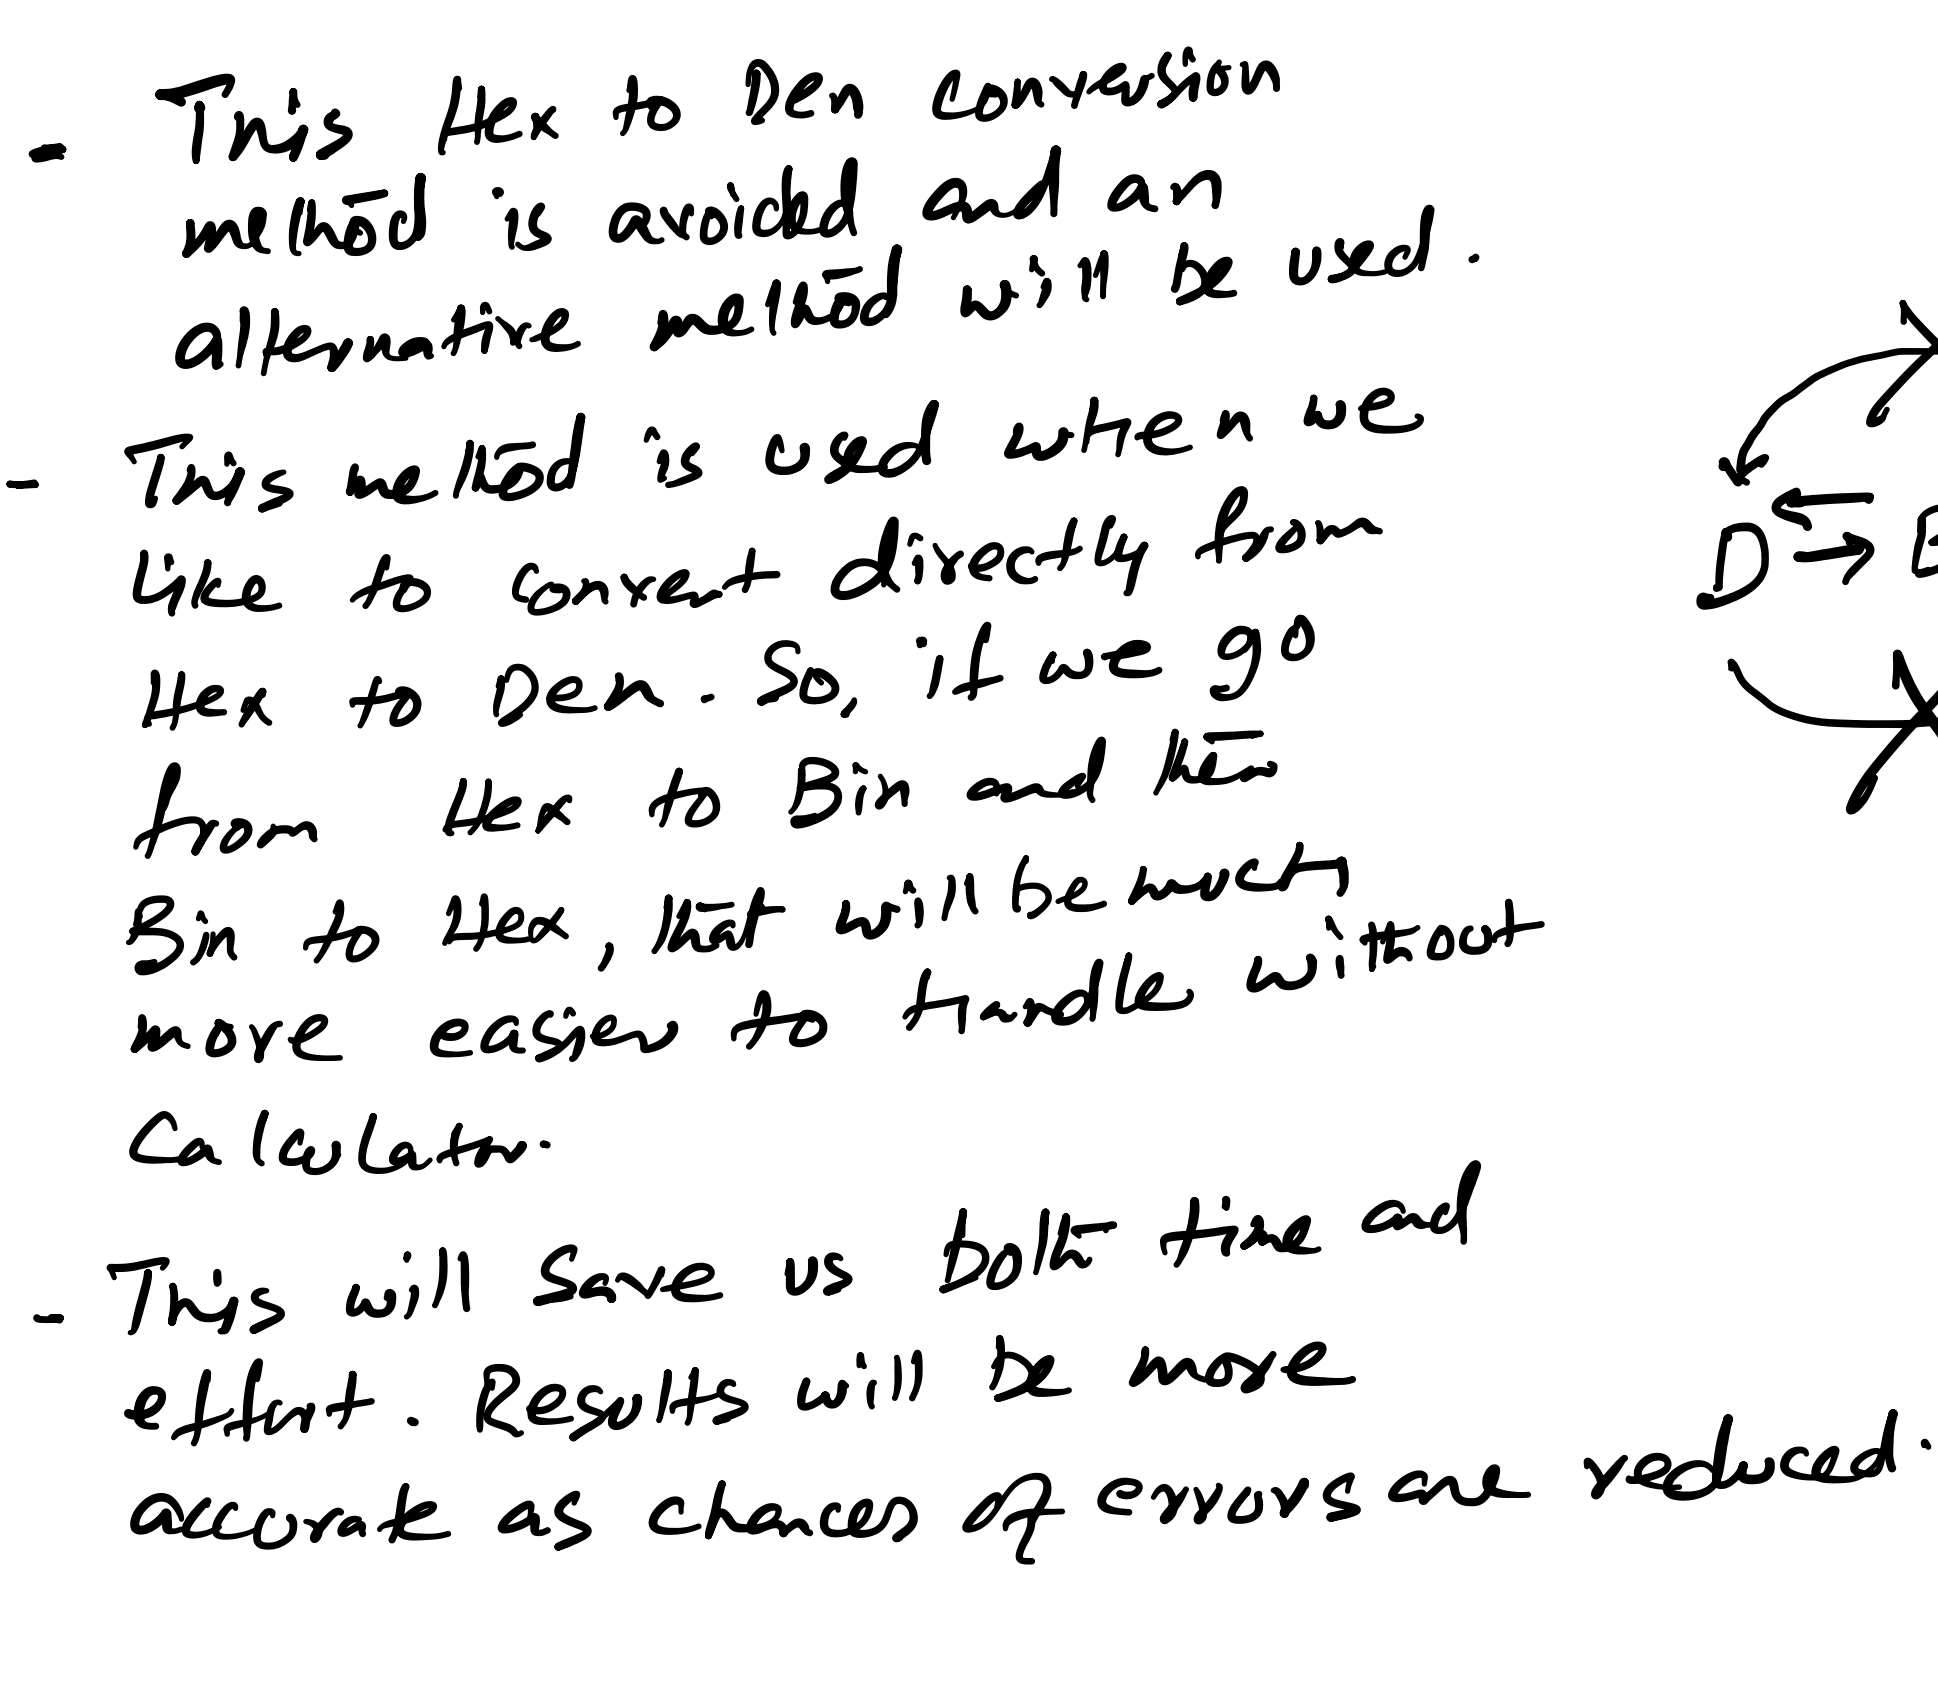 - This Hex to Den conversion
method is avoided and an
alternative method will be used.
- This method is used when we
like to convert directly from
Hex to Den. So, if we go
from Hex to Bin and then
Bin to Hex, that will be much
more easier to handle without
Calculator.
- This will save us both time and
effort. Results will be more
accurate as chances of errors are reduced.
D ⇄ B